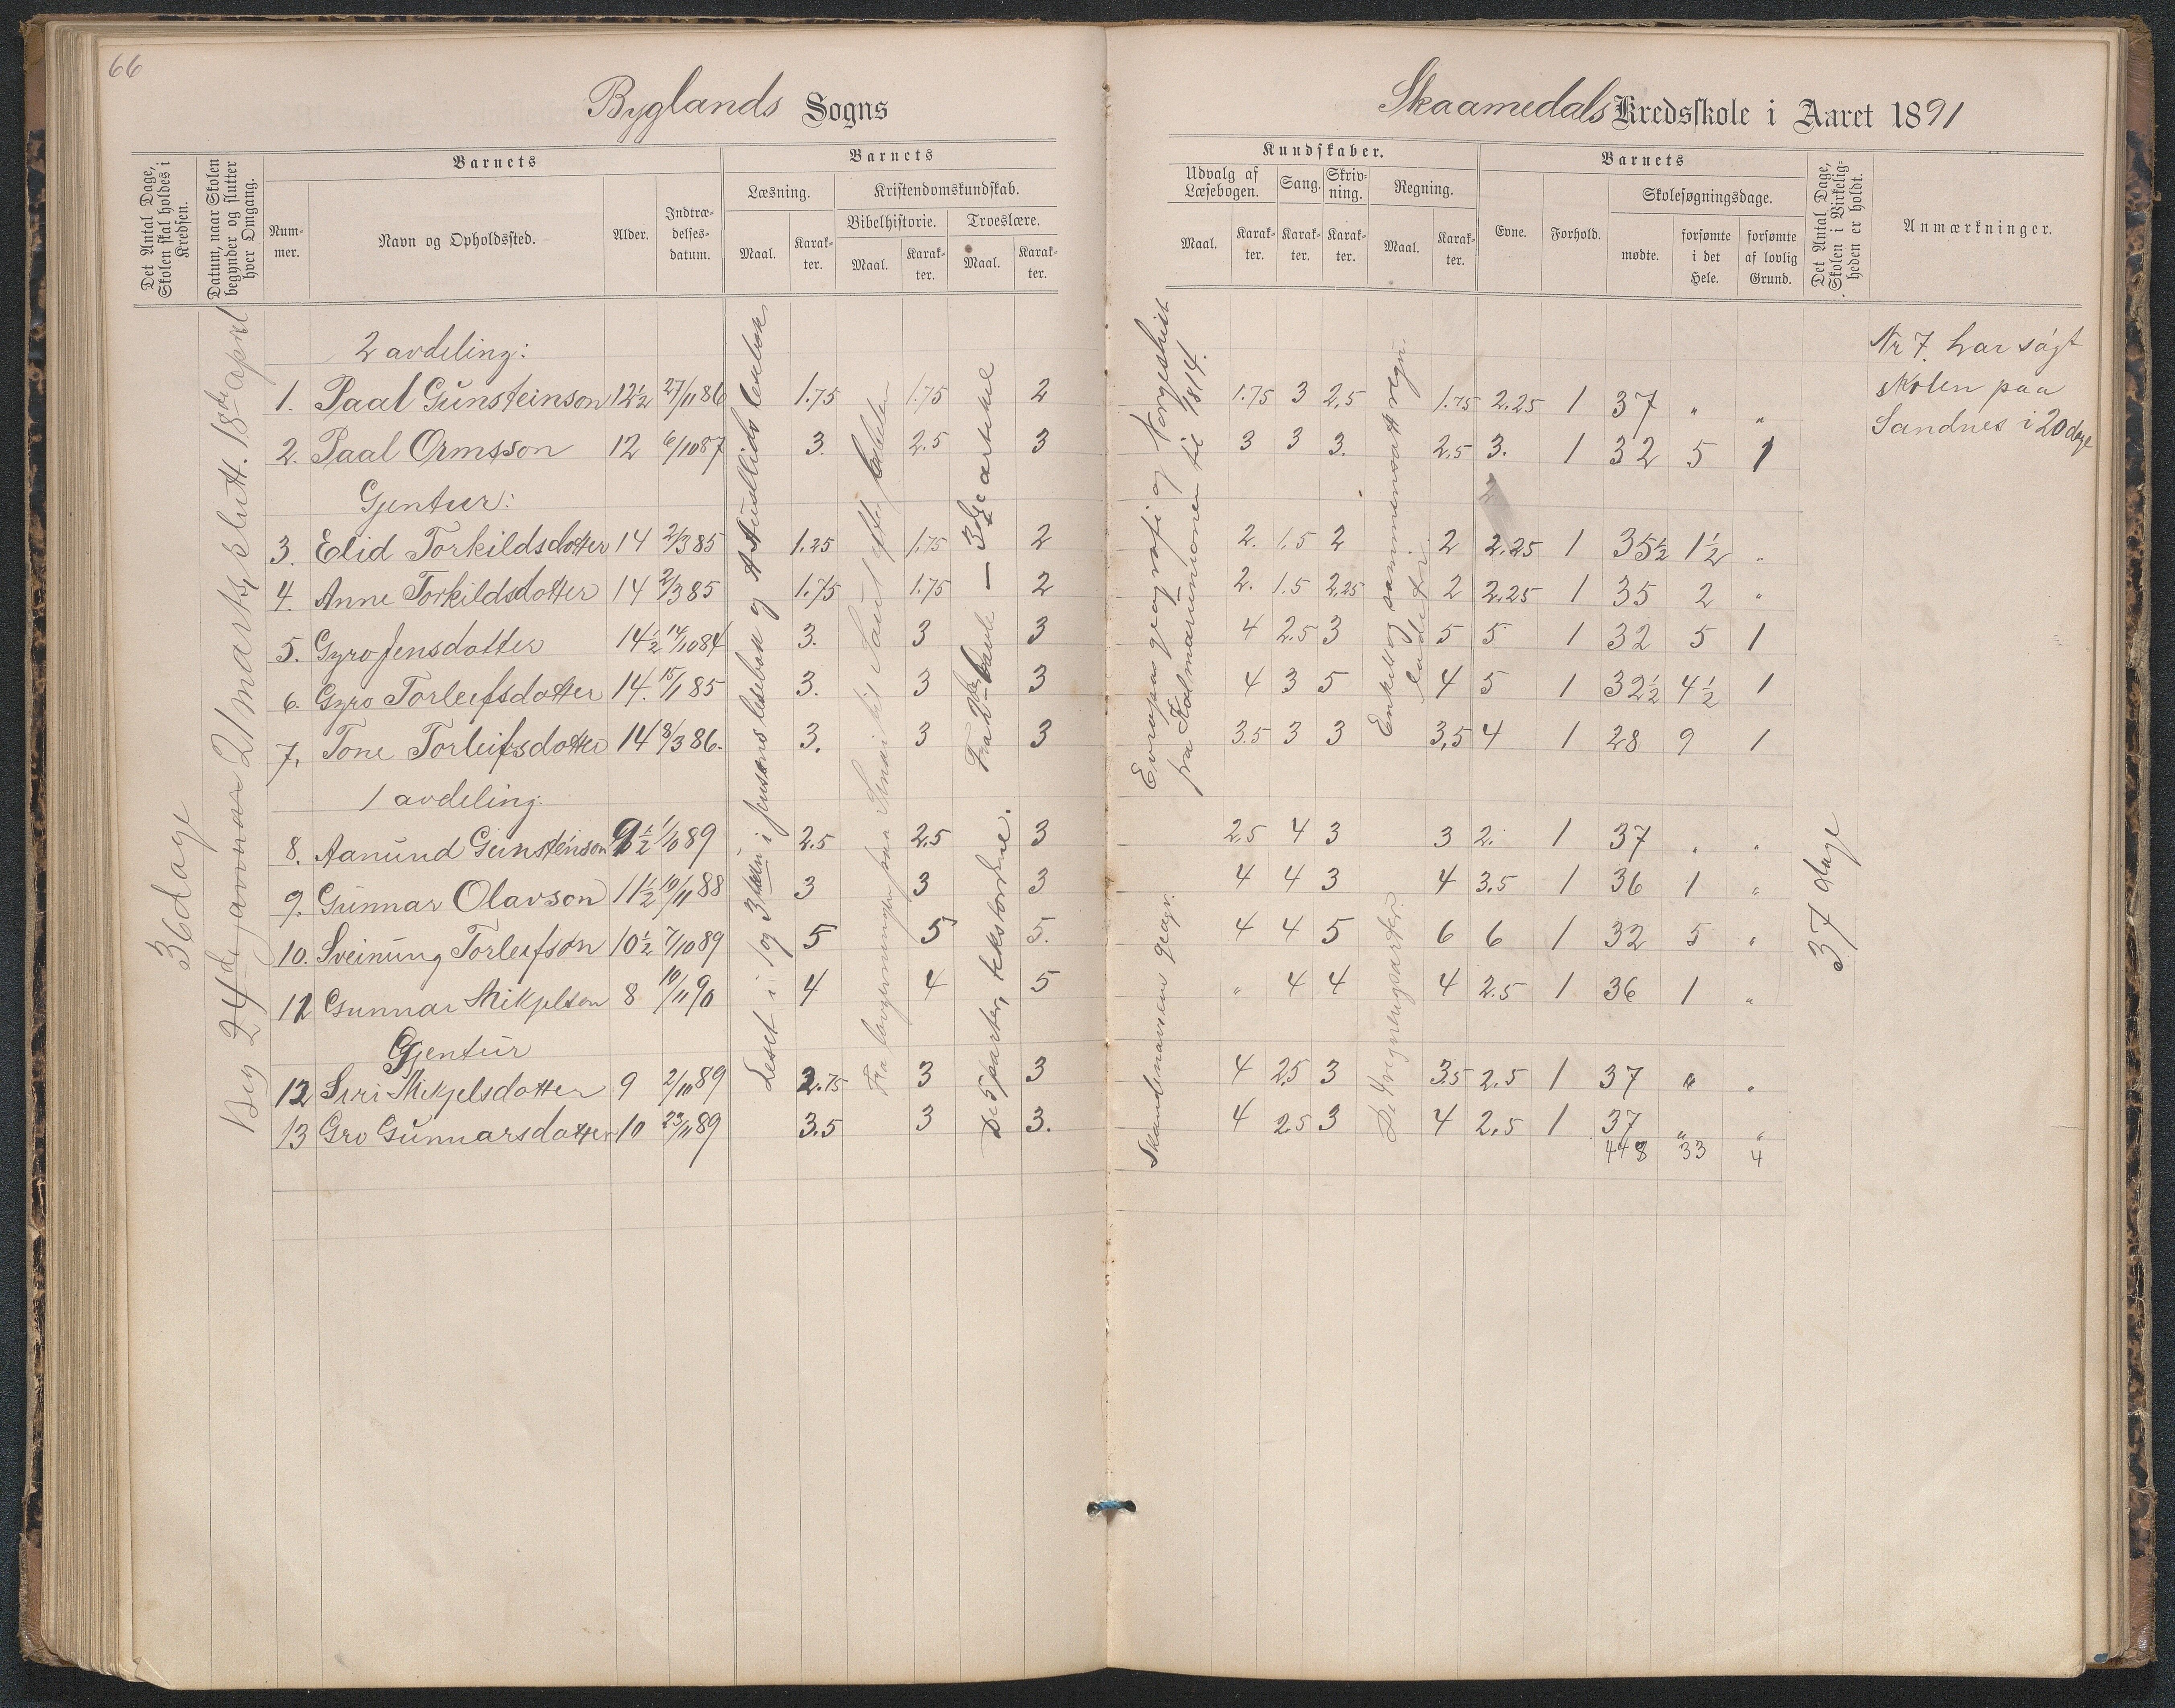 66
Byglands Sogns
Skaamedals Kredsskole i Aaret 1891
Det Antal Dage, Skolen skal holdes i Kredsen.
Datum, naar Skolen begynder og slutter hver Omgang.
Barnets
Num-mer.
Navn og Opholdssted.
Alder.
Indtræ-delses-datum.
Barnets
Læsning.
Maal.
Karak-ter.
Kristendomskundskab.
Bibelhistorie.
Maal.
Karak-ter.
Troeslære.
Maal.
Karak-ter.
Kundskaber.
Udvalg af Læsebogen.
Maal.
Karak-ter.
Sang.
Karak-ter.
Skriv-ning.
Karak-ter.
Regning.
Maal.
Karak-ter.
Barnets
Evne.
Forhold.
Skolesøgningsdage.
mødte.
forsømte i det Hele.
forsømte af lovlig Grund.
Det Antal Dage, Skolen i Virkelig-heden er holdt.
Anmærkninger.
36 dage
Beg 24de januar 21 marts, slutt. 18de april
2 avdeling:
1. Paal Gunsteinson 12½ 27/11 86 1.75 1.75 2 1.75 3 2,5 1.75 2.25 1 37 " "
2. Paal Ormsson 12 6/10 87 3. 2.5 3 3 3 3. 2,5 3. 1 32 5 1
Gjentur:
3. Elid Torkildsdotter 14 2/3 85 1.25 1.75 2 2. 1.5 2 2 2.25 1 35½ 1½ "
4. Anne Torkildsdotter 14 2/3 85 1.75 1.75 2 2. 1.5 2,25 2 2,25 1 35 2 "
5. Gyro Jensdotter 14½ 14/10 84 3. 3 3 4 2.5 3 5 5 1 32 5 1
6. Gyro Torleifsdotter 14. 15/1 85 3. 3 3 4 3 5 4 5 1 32½ 4½ 1
7. Tone Torleifsdotter 14 8/3 86. 3. 3 3 3.5 3 3 3,5 4 1 28 9 1
1 avdeling:
8. Aanund Gunsteinson 9½ 1/10 89 2.5 2,5 3 2,5 4 3 3 2. 1 37 " "
9. Gunnar Olavson 11½ 10/11 88 3 3 3 4 4 3 4 3.5 1 36 1 "
10. Sveinung Torleifson 10½ 7/10 89 5 5 5. 4 4 5 6 6 1 32 5 "
11 Gunnar Mikjelson 8 10/11 90 4 4 5 " 4 4 4 2.5 1 36 1 "
Gjentur
12 Siri Mikjelsdotter 9 2/10 89 2.75 3 3 4 2,5 3 3.5 2.5 1 37 " "
13 Gro Gunnarsdotter 10 23/11 89 3.5 3 3. 4 2,5 3 4 2,5 1 37 " "
448 33 4
Leset i 1 og 3 i Jensens lesebok og
Fra lovgevningen paa Sinai til Saul
Fra 2den — 3de artikel
De 5 parter, tekstordene.
Europas geografi og Norgeshist
fra Kalmarunionen til 1814.
Skandinaviens geogr.
Enkelt og sammensatt regn.
De 4 regningsarter.
37 dage
Nr 7. har søgt
skolen paa
Sandnes i 20 dage